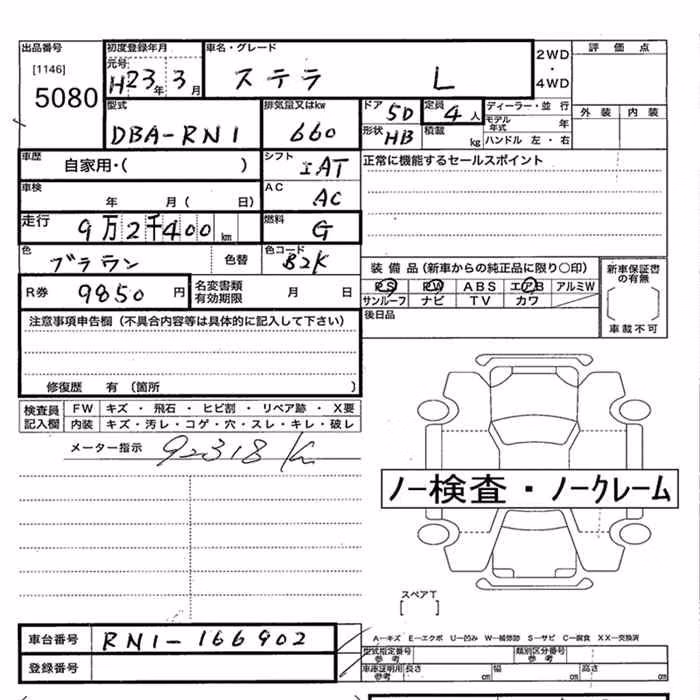 出品番号 初度登録年月 車名・グレード 2WD 評価点
[1146] 元号 ・
5080 H23年3月 ステラ L 4WD 外装 内装
型式 排気量又はkw ドア 5D 定員 4人 ディーラー・並行
DBA-RN1 660 形状 HB 積載 kg モデル年式 年
ハンドル 左・右
車歴 自家用・( ) シフト IAT 正常に機能するセールスポイント
車検 年 月( 日) AC AC
走行 9万2千400km 燃料 G
色 ブラウン 色替 色コード B2K 装備品(新車からの純正品に限り○印) 新車保証書の有無
R券 9850円 名変書類有効期限 月 日 PS PW ABS エアB アルミW
サンルーフ ナビ TV カワ 車載不可
注意事項申告欄(不具合内容等は具体的に記入して下さい) 後日品
修復歴 有(箇所 )
検査員 FW キズ・飛石・ヒビ割・リペア跡・X要
記入欄 内装 キズ・汚レ・コゲ・穴・スレ・キレ・破レ
メーター指示 92318 K
ノー検査・ノークレーム
スペアT
[ ]
車台番号 RN1-166902 A―キズ E―エクボ U―凹み W―補修跡 S―サビ C―腐食 XX―交換済
型式指定番号 参考 類別区分番号 参考
登録番号 車庫証明用 参考 長さ cm 幅 cm 高さ cm